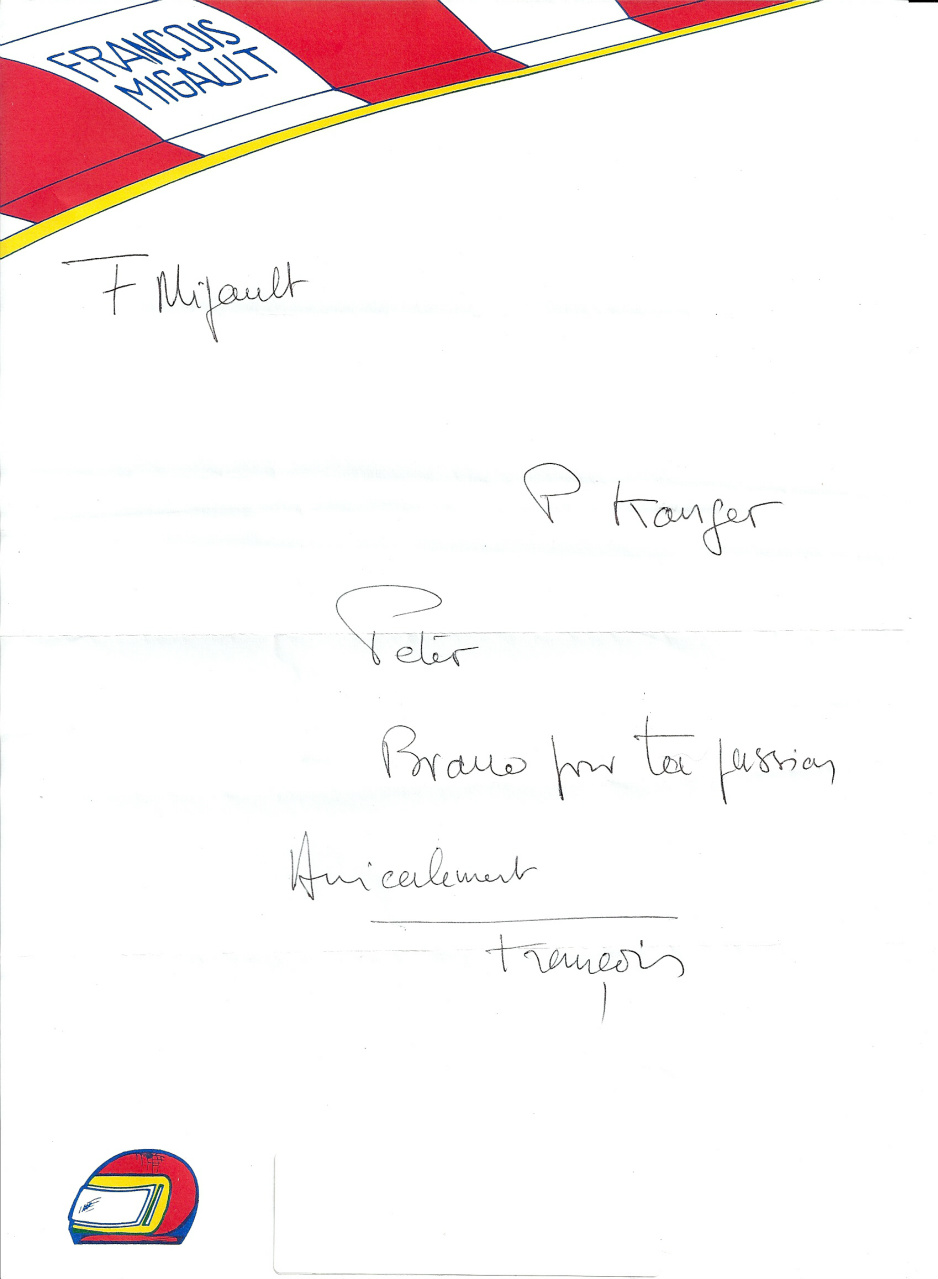 FRANÇOIS
MIGAULT
F Migault
P Kanger
Peter
Bravo pour ta passion
Amicalement
François